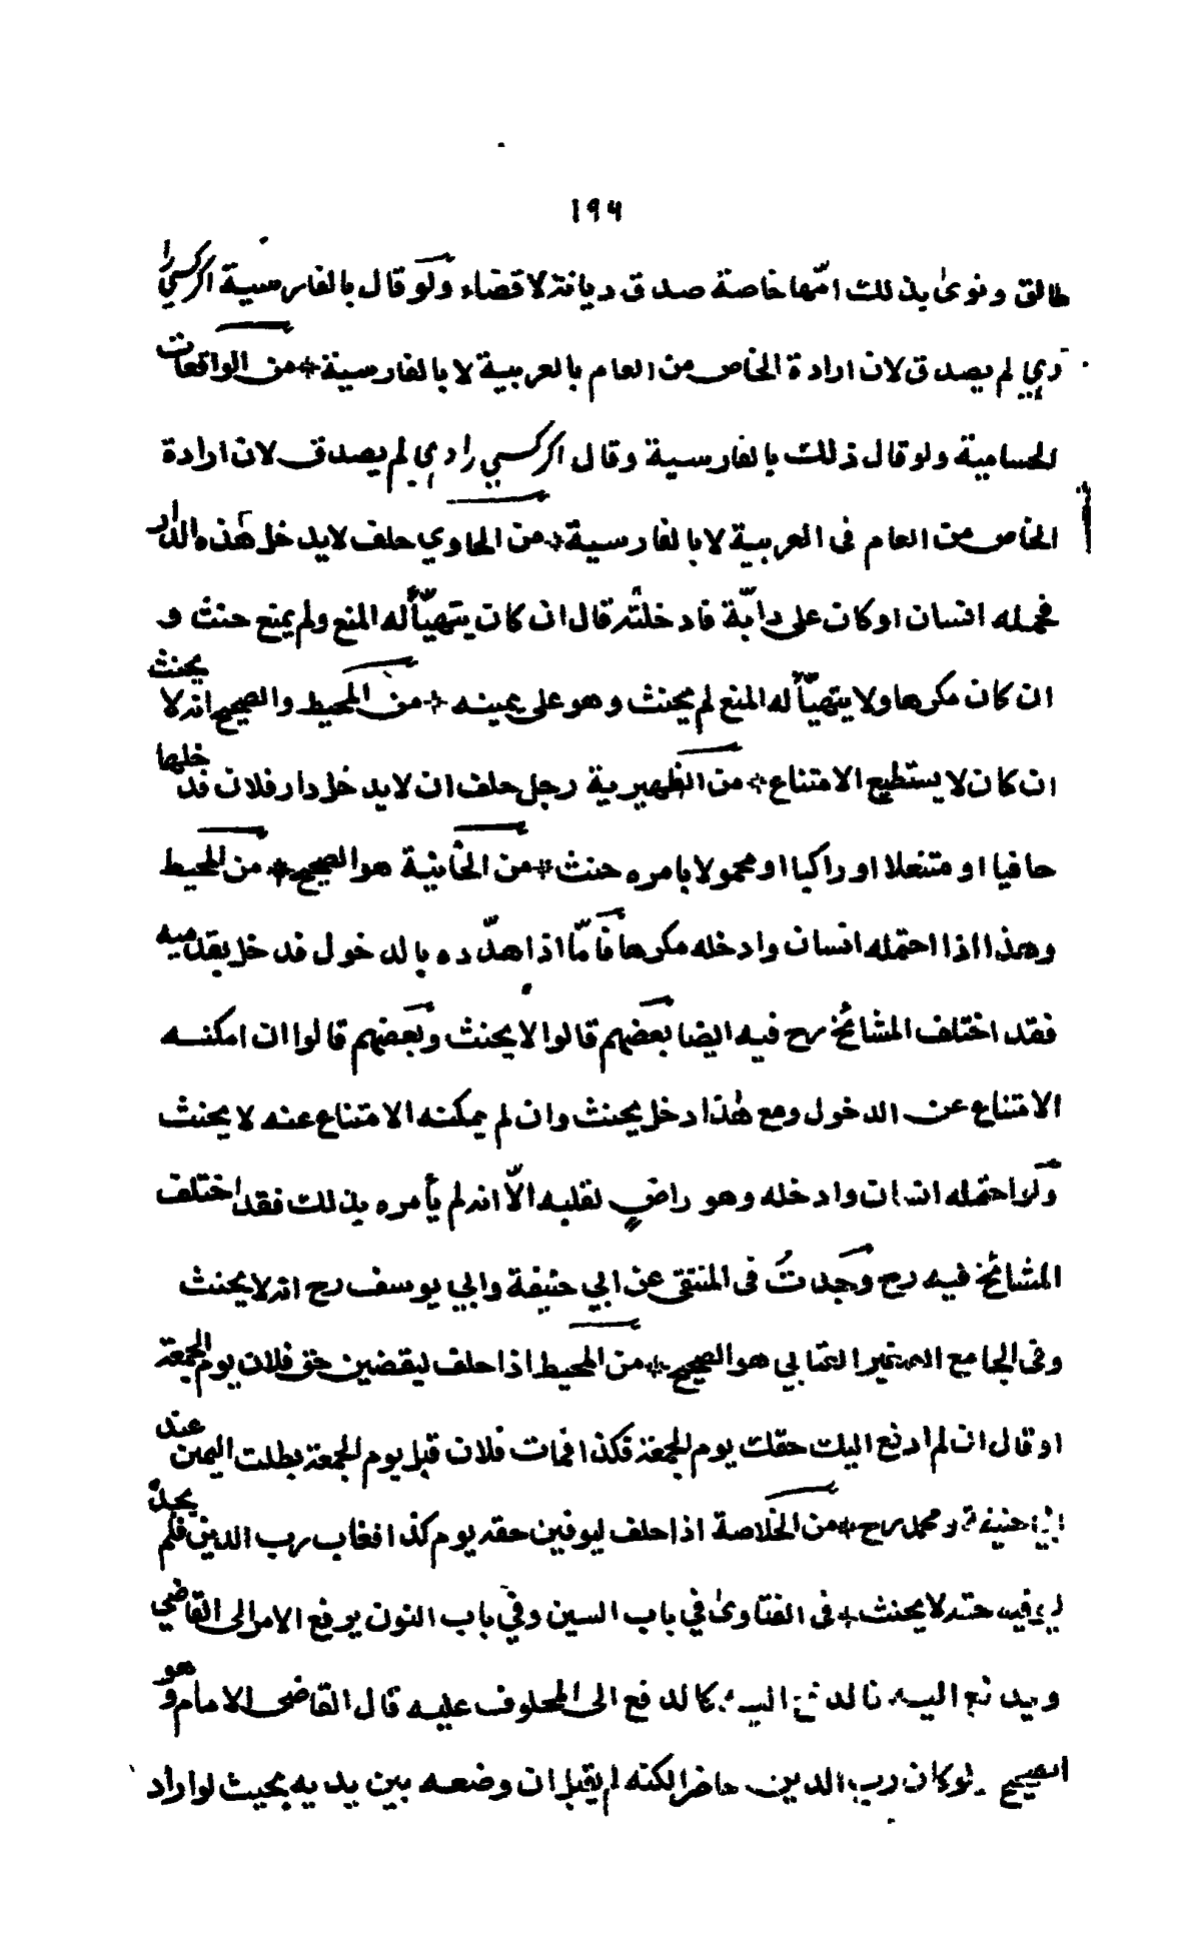 ١٩٦
طالق ونوى بذلك امّها خاصة صدق ديانة لا قضاء ولو قال بالفارسية اكر كسي را
لم يصدق لان ارادة الخاص من العام بالعربية لا بالفارسية * من الواقعات
الحسامية ولو قال ذلك بالفارسية وقال اكر كسي را دهي لم يصدق لان ارادة
الخاص من العام فى العربية لا بالفارسية * من الحاوي حلف لا يدخل هذه الدار
فحمله انسان او كان على دابّة فادخلته قال ان كان يتهيّأ له المنع ولم يمنع حنث و
ان كان مكرها ولا يتهيّأ له المنع لم يحنث وهو على يمينه * من المحيط والصحيح انه لا يحنث
ان كان لا يستطيع الامتناع * من الظهيرية رجل حلف ان لا يدخل دار فلان فدخلها
حافيا او متنعلا او راكبا او محمولا بامره حنث * من الخانية هو الصحيح * من المحيط
وهذا اذا احتمله انسان وادخله مكرها فامّا اذا هدّده بالدخول فدخل بقدميه
فقد اختلف المشائخ رح فيه ايضا بعضهم قالوا لا يحنث وبعضهم قالوا ان امكنه
الامتناع عن الدخول ومع هذا دخل يحنث وان لم يمكنه الامتناع عنه لا يحنث
ولو احتمله انسان وادخله وهو راضٍ لقلبه الّا انه لم يأمره بذلك فقد اختلف
المشائخ فيه رح وجدتُ فى المنتقى عن ابي حنيفة وابي يوسف رح انه لا يحنث
وفى الجامع الصغير العتابي هو الصحيح * من المحيط اذا حلف ليقضين حق فلان يوم الجمعة
او قال ان لم ادفع اليك حقك يوم الجمعة فكذا فمات فلان قبل يوم الجمعة بطلت اليمين عند
ابي حنيفة ومحمد رح * من الخلاصة اذا حلف ليوفين حقه يوم كذا فغاب رب الدين فلم يجد
ليوفيه حقه لا يحنث * فى الفتاوى في باب السين وفي باب النون يرفع الامر الى القاضي
ويدفع اليه فالدفع اليه كالدفع الى المحلوف عليه قال القاضى الامام وهو
الصحيح ولو كان رب الدين حاضرا لكنه لم يقبل ان وضعه بين يديه بحيث لو اراد